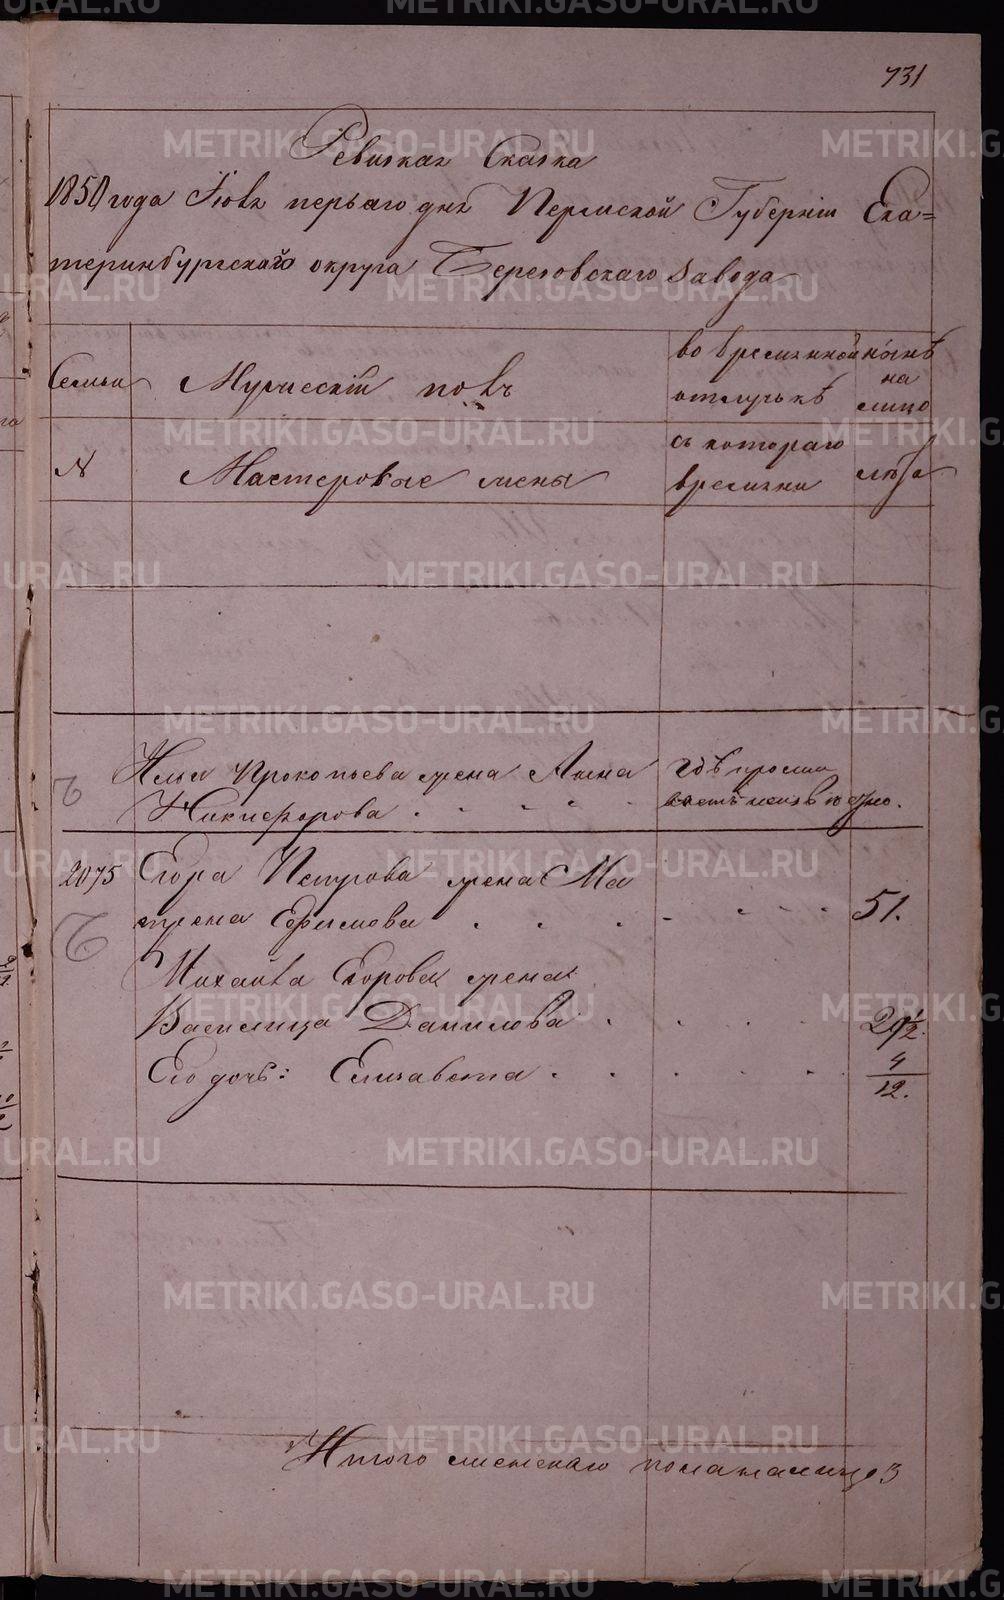 731
Ревизкая Сказка
1850 года Іюля перваго дня Пермской Губерніи Ека=
теринбургскаго округа Березовскаго завода
Семьи
Мужескій полъ
во временной
отлучкѣ
нынѣ
на
лицо
N
Мастеровые жены
съ котораго
времени
лѣта
Ильи Прокопьева жена Анна
Никифорова . . . . .
гдѣ прожи
ваетъ неизвѣстно.
2075
Егора Петрова жена Ма
трена Ефимова . . . . . . .
51.
Михайла Егорова жена
Василиса Данилова . . . . .
29 1/2.
Его дочь: Елизавета . . . . .
4/12.
Итого женскаго пола налицо 3
METRIKI.GASO-URAL.RU